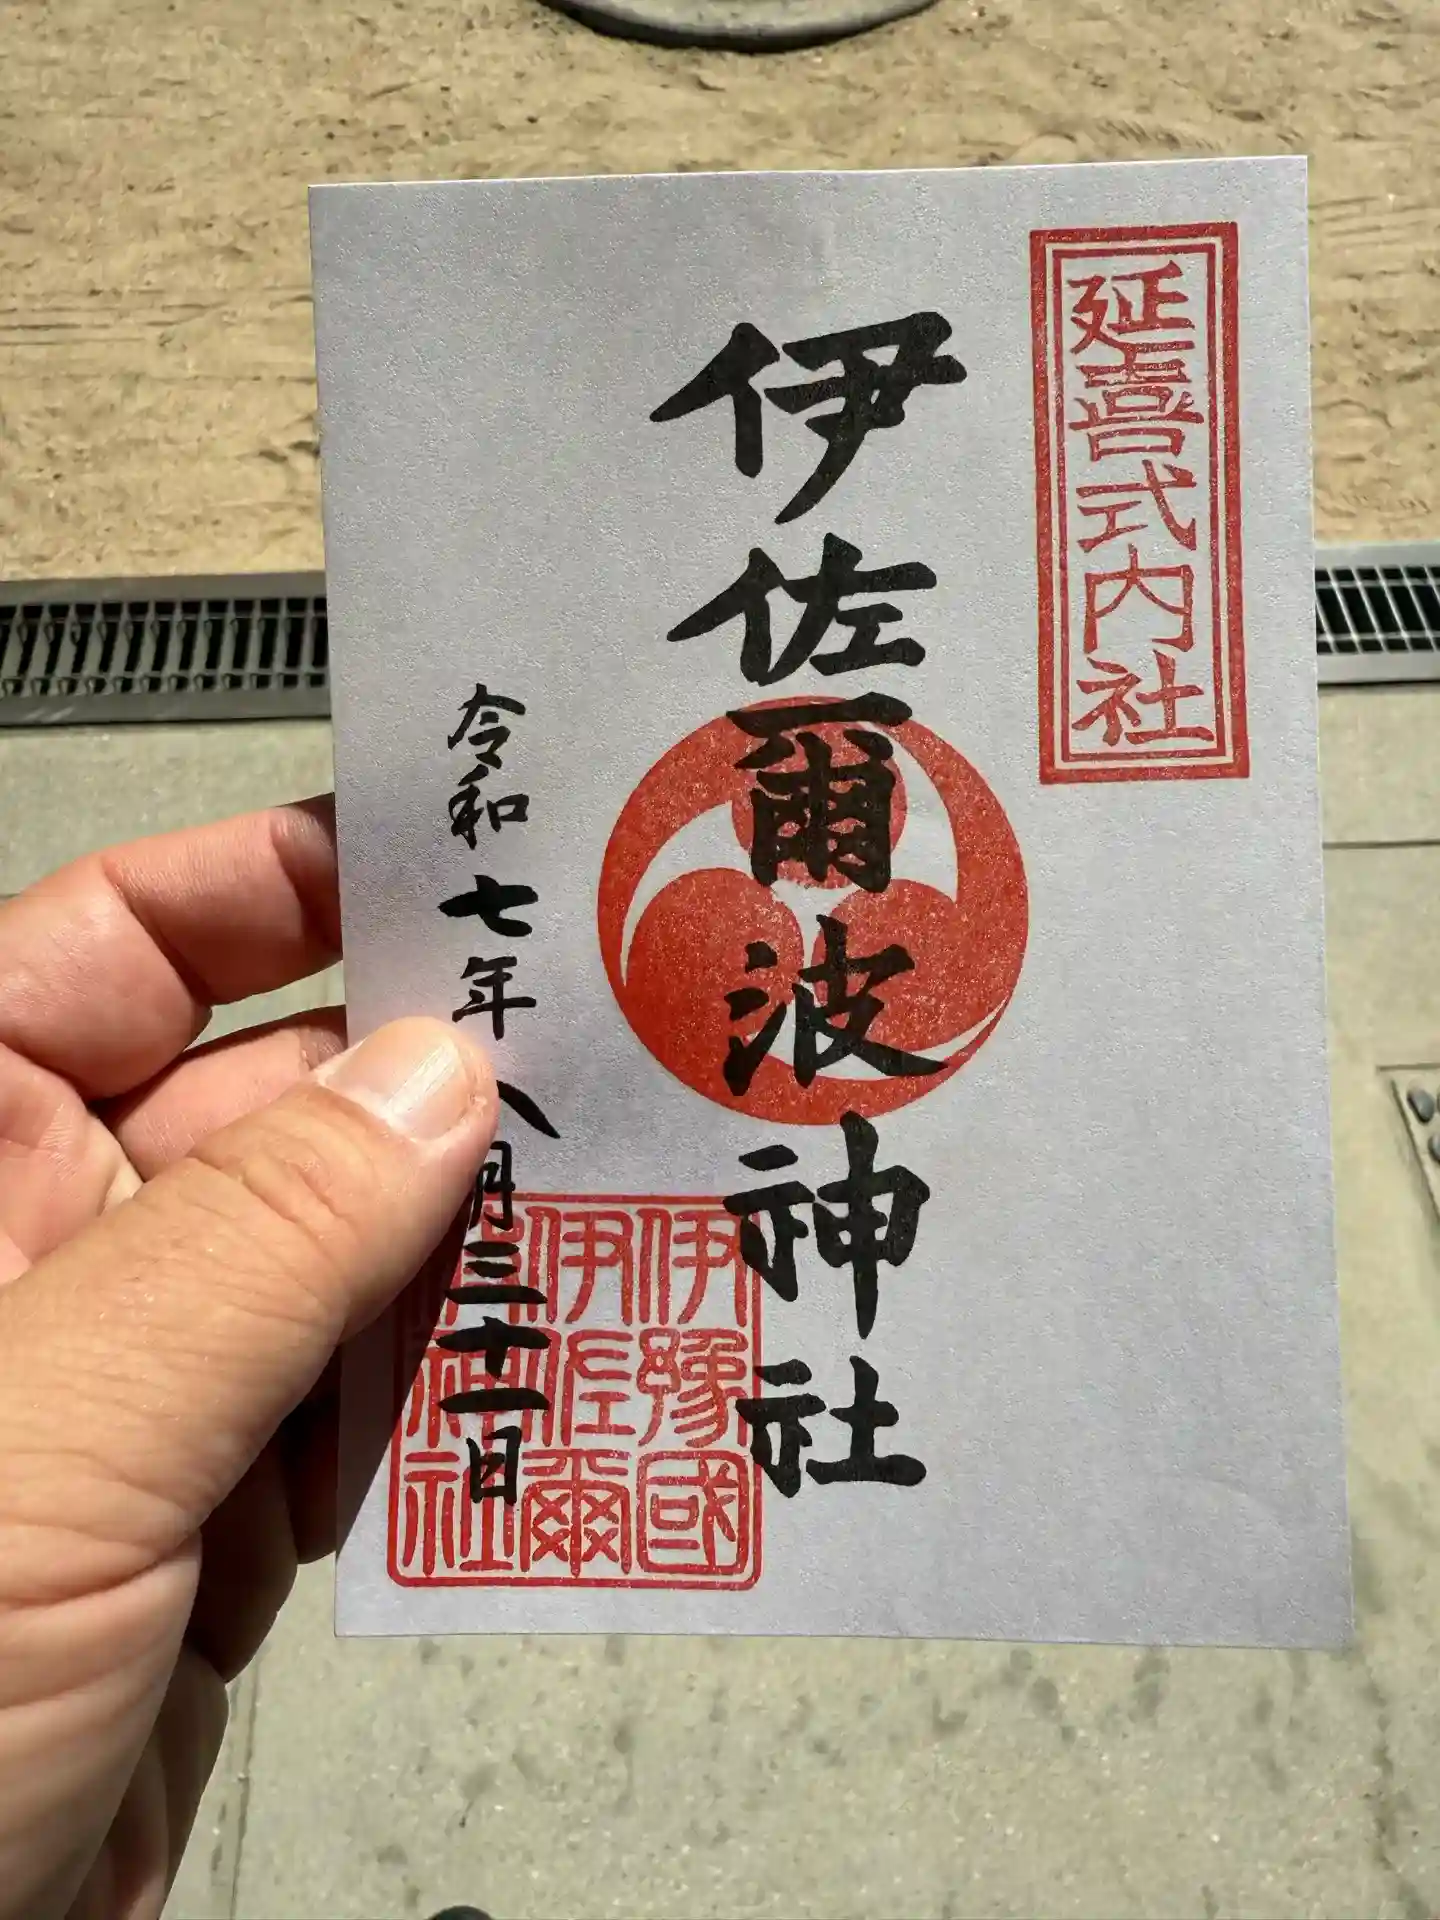 延喜式内社
伊佐爾波神社
令和七年八月三十一日
伊豫國
伊佐爾
神社